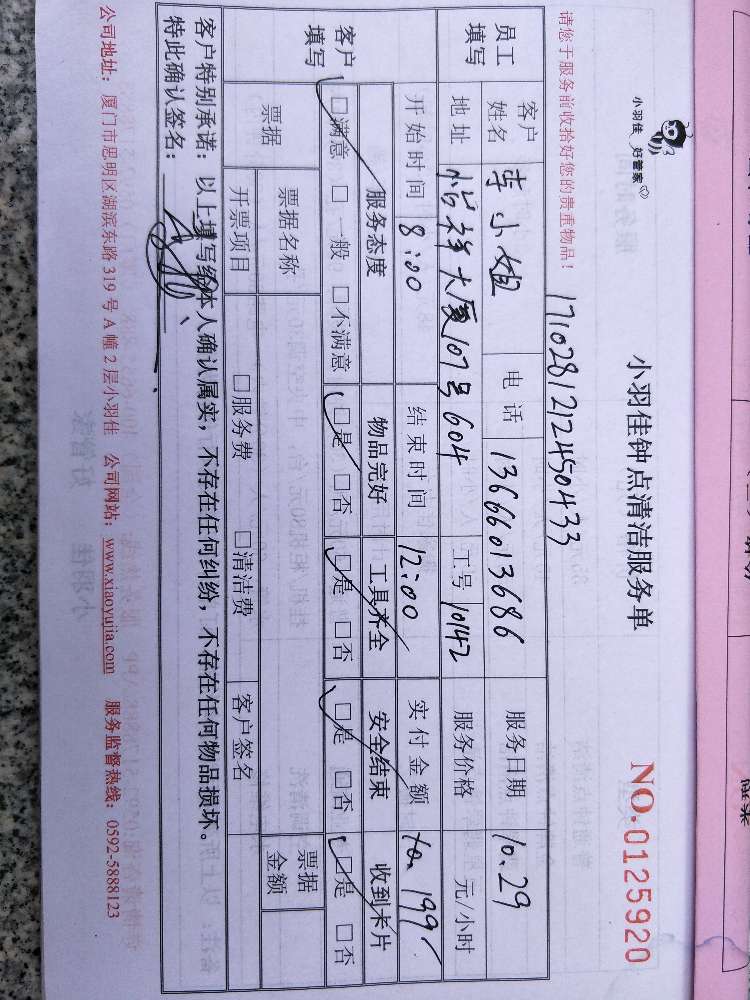 小羽佳 好管家
小羽佳钟点清洁服务单
NO.0125920
请您于服务前收拾好您的贵重物品!
171028121245０433
员工填写
客户姓名 李小姐 电话 13666013686 服务日期 10.29
地址 怡祥大厦107号604 工号 10142 服务价格 元/小时
开始时间 8:00 结束时间 12:00 实付金额 199
客户填写
服务态度 物品完好 工具齐全 安全结束 收到卡片
□满意 □一般 □不满意 □是 □否 □是 □否 □是 □否 □是 □否
票据 票据名称 票据金额
开票项目 □服务费 □清洁费 客户签名
客户特别承诺：以上填写经本人确认属实，不存在任何纠纷，不存在任何物品损坏。
特此确认签名：
公司地址：厦门市思明区湖滨东路319号A幢2层小羽佳 公司网站：www.xiaoyujia.com 服务监督热线：0592-5888123